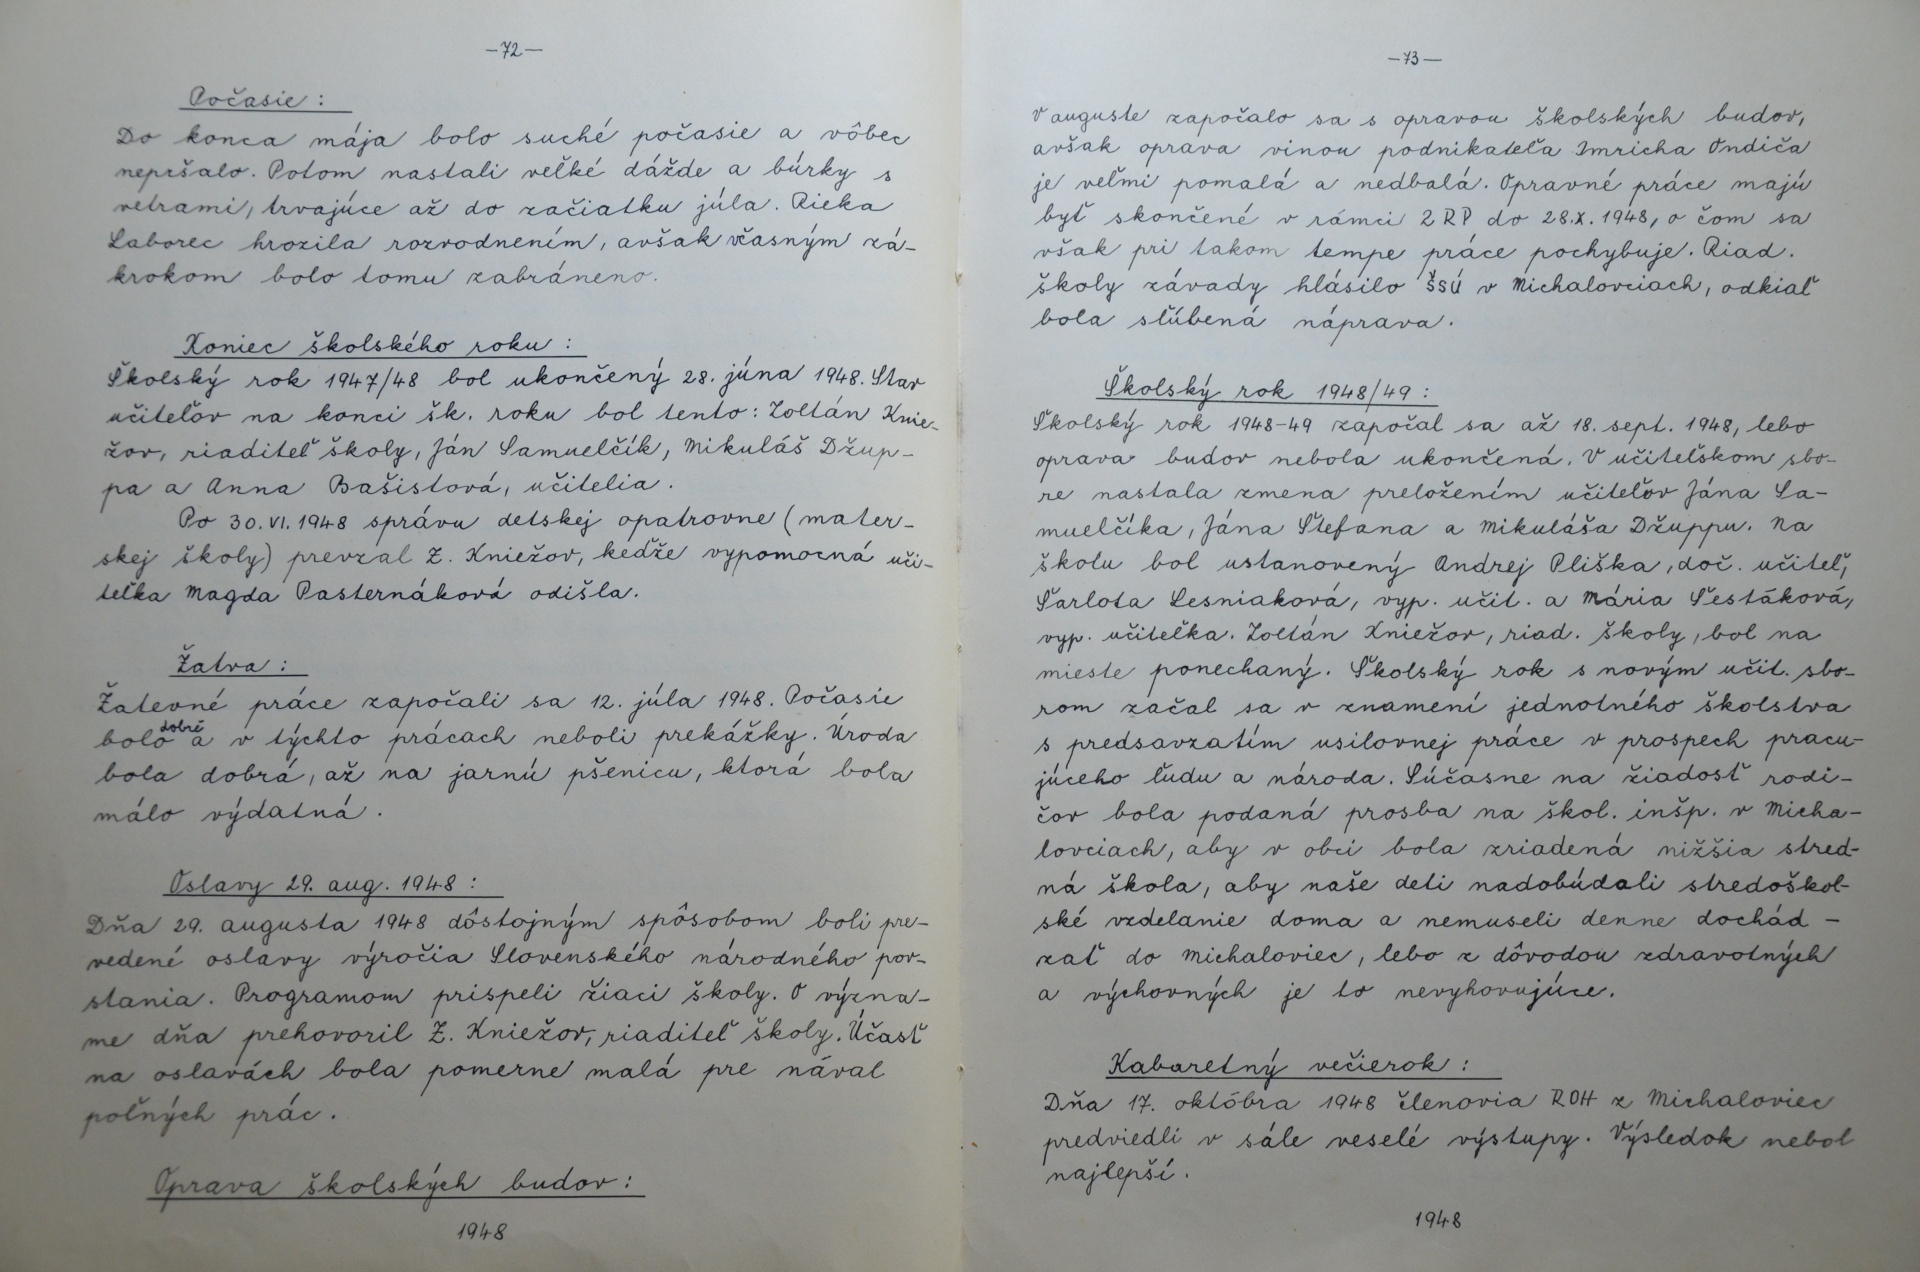 —72—
Počasie :
Do konca mája bolo suché počasie a vôbec
nepršalo. Potom nastali veľké dážde a búrky s
vetrami, trvajúce až do začiatku júla. Rieka
Laborec hrozila rozvodnením, avšak včasným zá-
krokom bolo tomu zabráneno.
Koniec školského roku :
Školský rok 1947/48 bol ukončený 28. júna 1948. Stav
učiteľov na konci šk. roku bol tento: Zoltán Knie-
žov, riaditeľ školy, Ján Samuelčík, Mikuláš Džup-
pa a Anna Bašistová, učitelia.
Po 30. VI. 1948 správu detskej opatrovne (mater-
skej školy) prevzal Z. Kniežov, keďže vypomocná uči-
teľka Magda Pasternáková odišla.
Žatva :
Žatevné práce započali sa 12. júla 1948. Počasie
bolo dobré a v týchto prácach neboli prekážky. Úroda
bola dobrá, až na jarnú pšenicu, ktorá bola
málo výdatná.
Oslavy 29. aug. 1948 :
Dňa 29. augusta 1948 dôstojným spôsobom boli pre-
vedené oslavy výročia Slovenského národného pov-
stania. Programom prispeli žiaci školy. O význa-
me dňa prehovoril Z. Kniežov, riaditeľ školy. Účasť
na oslavách bola pomerne malá pre nával
poľných prác.
Oprava školských budov :
1948
—73—
V auguste započalo sa s opravou školských budov,
avšak oprava vinou podnikateľa Imricha Ondiča
je veľmi pomalá a nedbalá. Opravné práce majú
byť skončené v rámci 2 RP do 28. X. 1948, o čom sa
však pri takom tempe práce pochybuje. Riad.
školy závady hlásilo ŠSÚ v Michalovciach, odkiaľ
bola sľúbená náprava.
Školský rok 1948/49 :
Školský rok 1948-49 započal sa až 18. sept. 1948, lebo
oprava budov nebola ukončená. V učiteľskom sbo-
re nastala zmena preložením učiteľov Jána Sa-
muelčíka, Jána Štefana a Mikuláša Džuppu. Na
školu bol ustanovený Andrej Pliška, doč. učiteľ,
Šarlota Lesniaková, vyp. učit. a Mária Šestáková,
vyp. učiteľka. Zoltán Kniežov, riad. školy, bol na
mieste ponechaný. Školský rok s novým učit. sbo-
rom začal sa v znamení jednotného školstva
s predsavzatím usilovnej práce v prospech pracu-
júceho ľudu a národa. Súčasne na žiadosť rodi-
čov bola podaná prosba na škol. inšp. v Micha-
lovciach, aby v obci bola zriadená nižšia stred-
ná škola, aby naše deti nadobúdali stredoškol-
ské vzdelanie doma a nemuseli denne dochád-
zať do Michaloviec, lebo z dôvodou zdravotných
a výchovných je to nevyhovujúce.
Kabaretný večierok :
Dňa 17. októbra 1948 členovia ROH z Michaloviec
predviedli v sále veselé výstupy. Výsledok nebol
najlepší.
1948